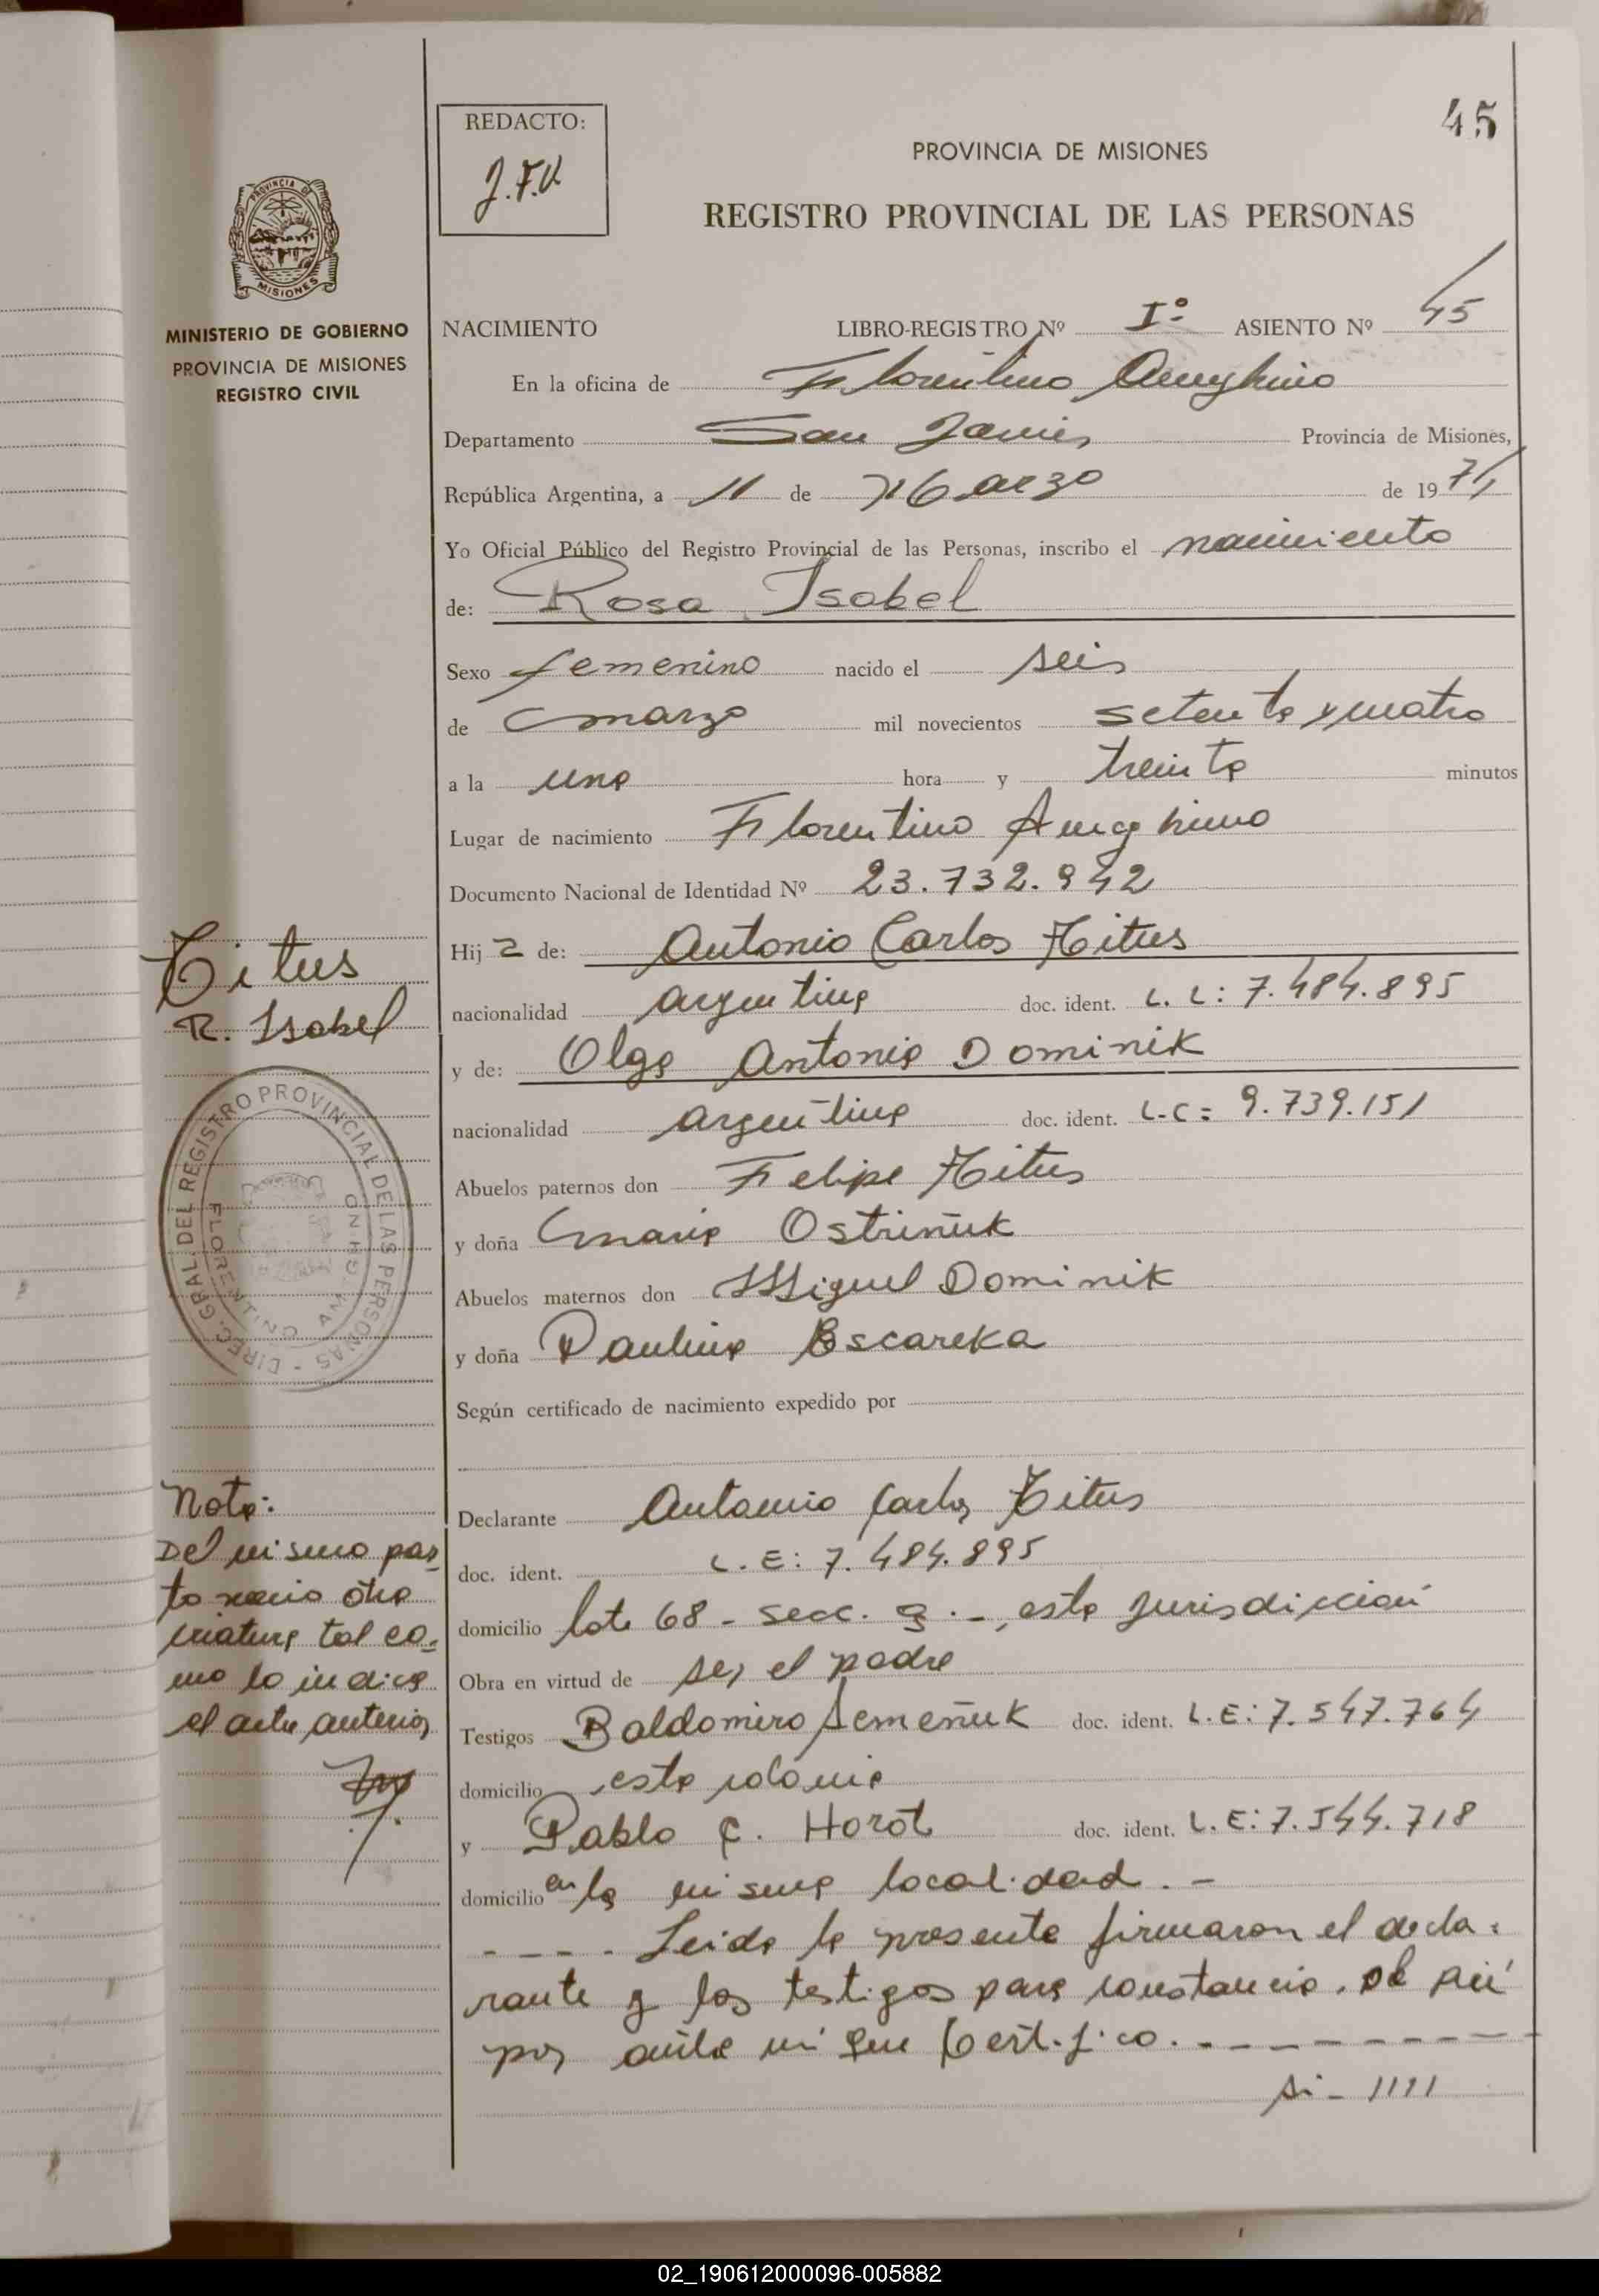 45
REDACTO:
J.F.V
PROVINCIA DE MISIONES
REGISTRO PROVINCIAL DE LAS PERSONAS
PROVINCIA DE
MISIONES
MINISTERIO DE GOBIERNO
PROVINCIA DE MISIONES
REGISTRO CIVIL
NACIMIENTO LIBRO-REGISTRO Nº Iº ASIENTO Nº 45
En la oficina de Florentino Ameghino
Departamento San Javier Provincia de Misiones,
República Argentina, a 11 de Marzo de 1974
Yo Oficial Público del Registro Provincial de las Personas, inscribo el nacimiento
de: Rosa Isabel
Sexo femenino nacido el seis
de marzo mil novecientos setenta y cuatro
a la una hora y treinta minutos
Lugar de nacimiento Florentino Ameghino
Documento Nacional de Identidad Nº 23.732.942
Hij a de: Antonio Carlos Titus
nacionalidad argentina doc. ident. L. E: 7.484.895
y de: Olga Antonia Dominik
nacionalidad argentina doc. ident. L.C= 9.739.151
Abuelos paternos don Felipe Titus
y doña Maria Ostriñuk
Abuelos maternos don Miguel Dominik
y doña Paulina Escareka
Según certificado de nacimiento expedido por
Declarante Antonio Carlos Titus
doc. ident. L.E: 7.484.895
domicilio lote 68 - secc. 9 .-, esta jurisdicción
Obra en virtud de ser el padre
Testigos Baldomero Semeñuk doc. ident. L.E: 7.547.764
domicilio esta colonia
y Pablo C. Horot doc. ident. L.E: 7.544.718
domicilio en la misma localidad. -
- - - - Leida la presente firmaron el decla-
rante y los testigos para constancia,
por ante mi que Certifico. - - - - - - - -
Titus
R. Isabel
DIREC. GRAL. DEL REGISTRO PROVINCIAL DE LAS PERSONAS -
FLORENTINO AMEGHINO
Nota:
Del mismo par-
to nacio otra
criatura tal co-
mo lo indica
el acta anterior
02_190612000096-005882